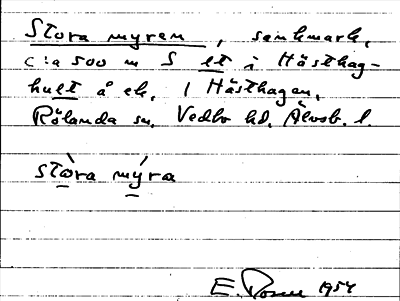 Stora myren, sankmark,
c:a 500 m S et i Hästhag-
hult å ek, 1 Hästhagen,
Rölanda sn, Vedbo hd, Älvsb. l.
stòra mýra
E. 1954